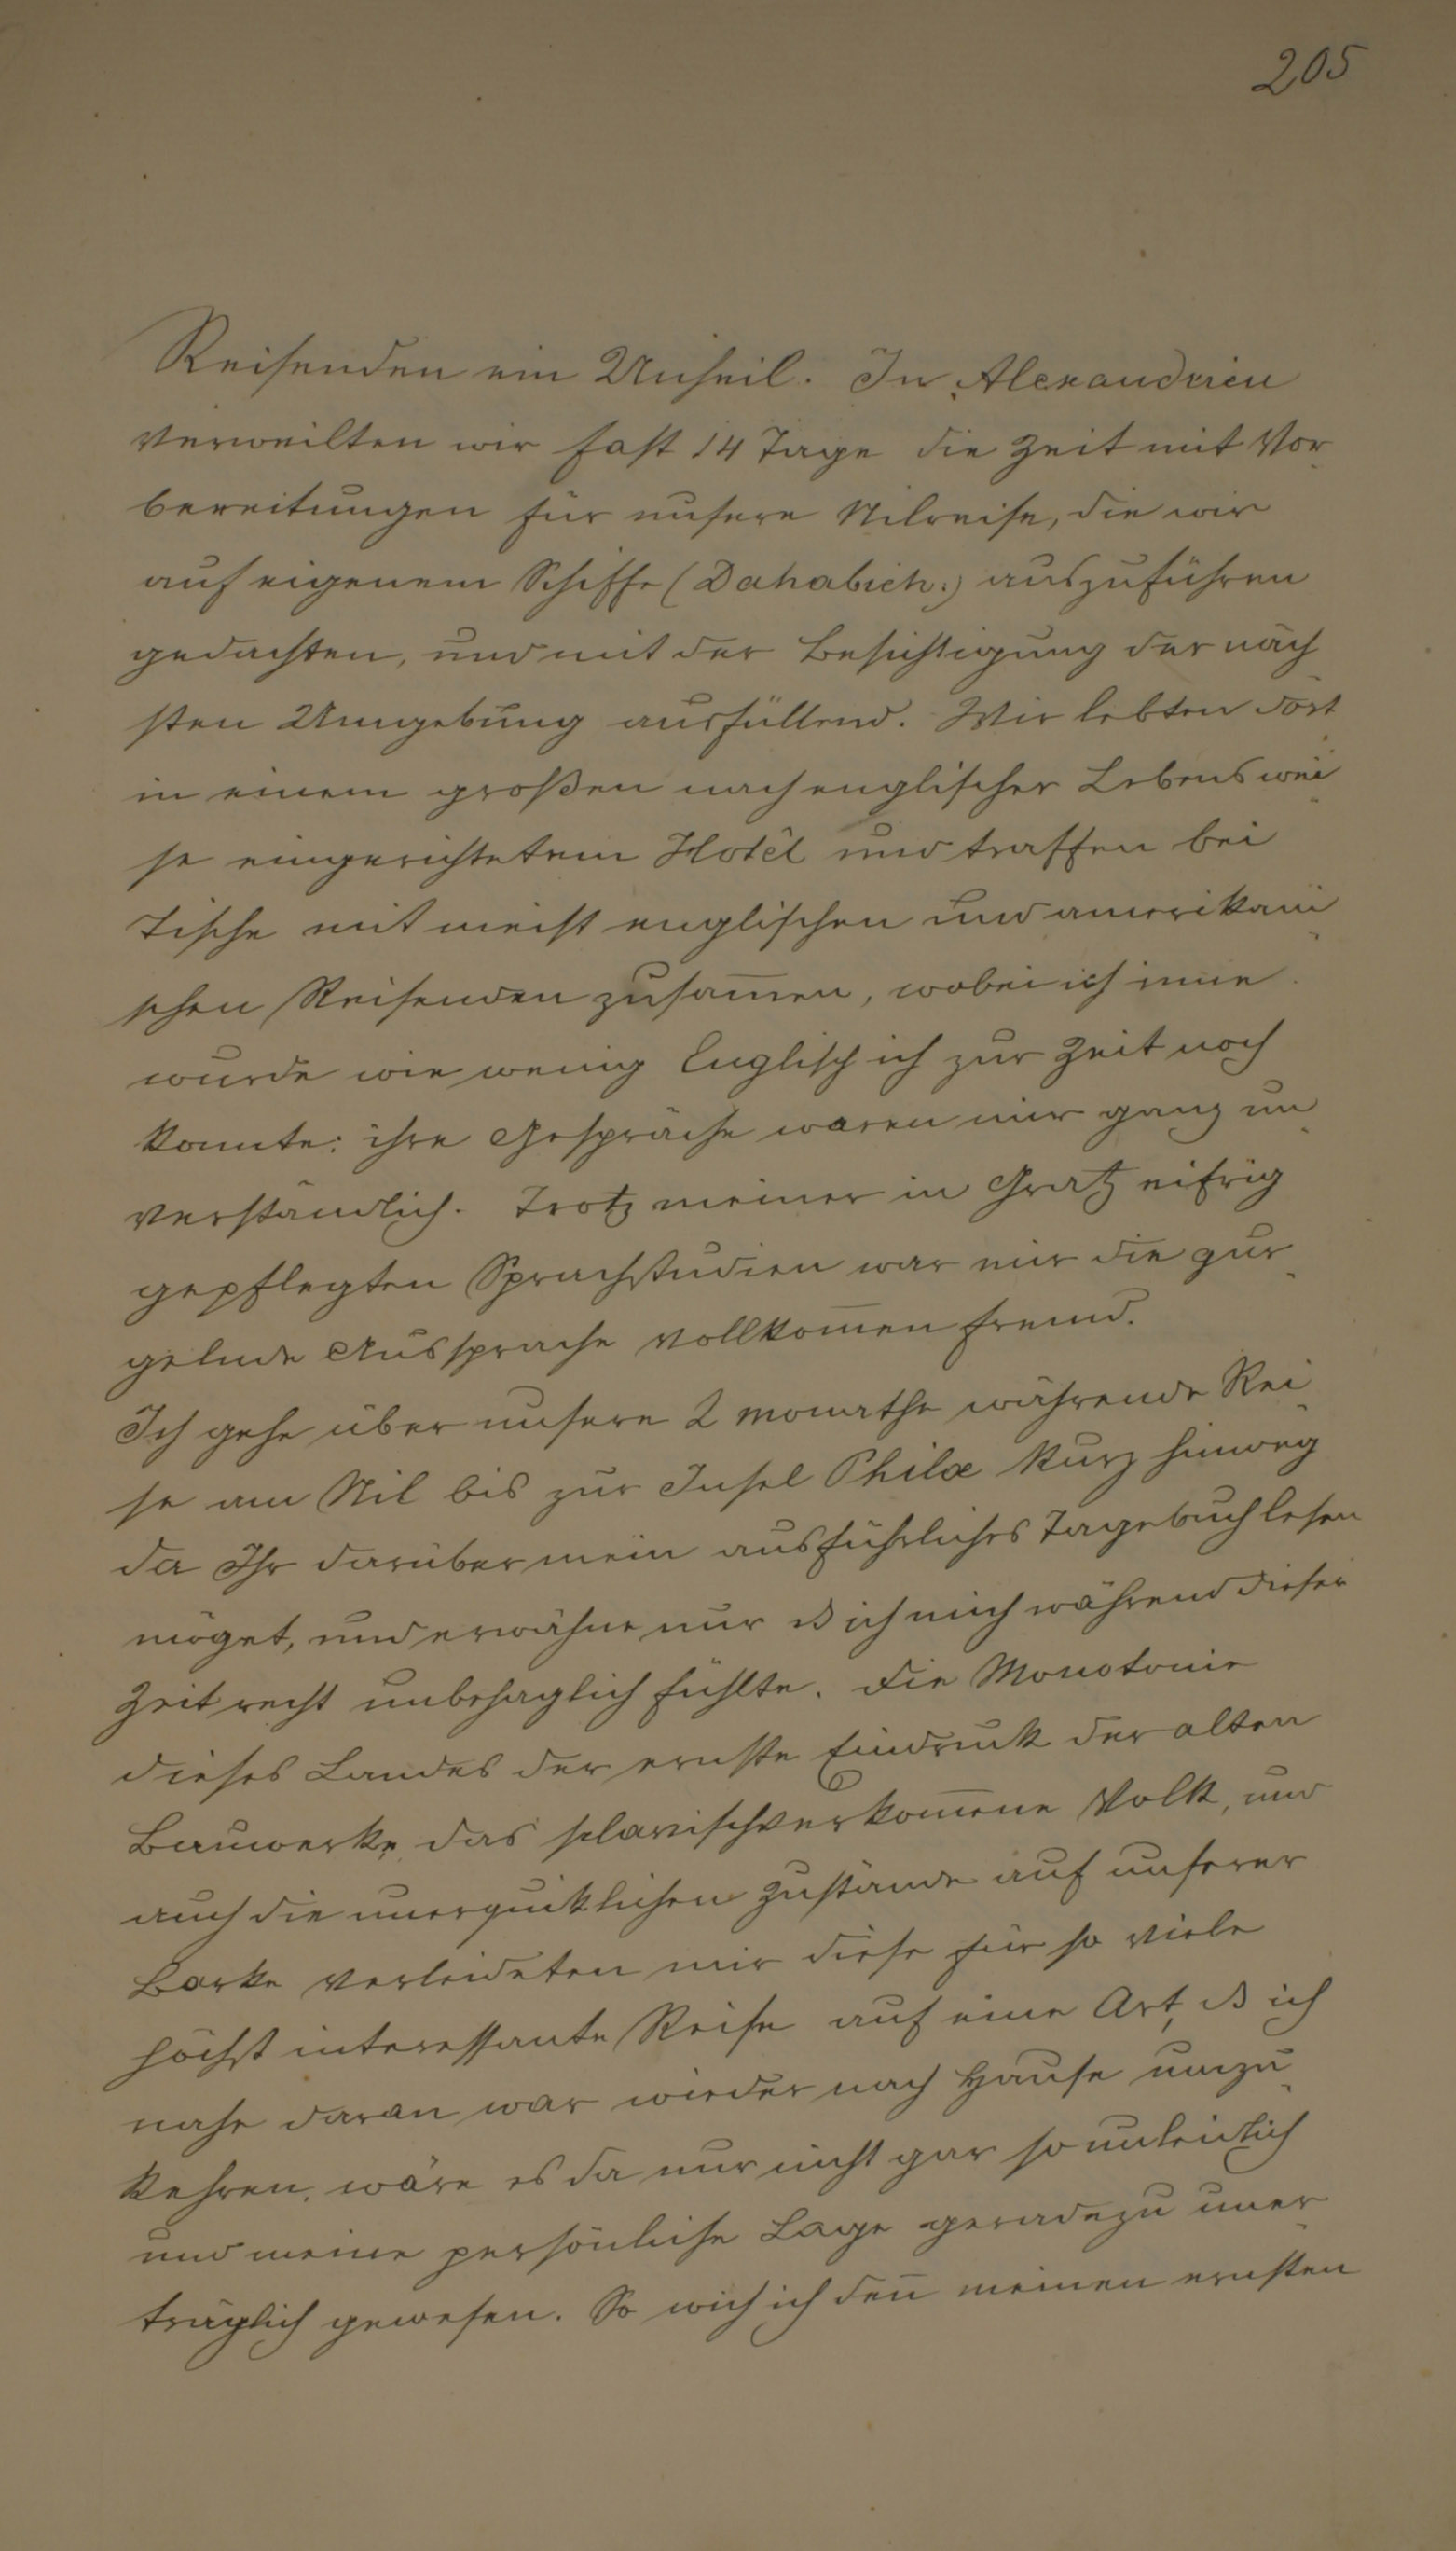 205
Reisenden ein Unheil. In Alexandrien
verweilten wir fast 14 Tage die Zeit mit Vor
bereitungen für unsere Nilreise, die wir
auf eigenem Schiffe (Dahabieh:) auszuführen
gedachten, und mit der Besichtigung der näch
sten Umgebung ausfüllend. Wir lebten dort
in einem großen nach englischer Lebenswei
se eingerichtetem Hotêl und traffen bei
Tische mit meist englischen und amerikani
schen Reisenden zusam̅en, wobei ich inne
wurde wie wenig Englisch ich zur Zeit noch
konnte: ihre Gespräche waren mir ganz un
verständlich. Trotz meiner in Gratz eifrig
gepflegten Sprachstudien war mir die gur
gelnde Aussprache vollkom̅en fremd.
Ich gehe über unsere 2 monathe währende Rei
se am Nil bis zur Insel Philæ kurz hinweg
da Ihr darüber mein ausführliches Tagebuch lesen
möget, und erwähne nur ß ich mich während dieser
Zeit recht unbehaglich fühlte. Die Monotonie
dieses Landes der ernste Eindruck der alten
Bauwerke, das sclavischverkom̅ene Volk, und
auch die unerquiklichen Zustände auf unserer
Barke verleideten mir diese für so viele
höchst interessante Reise auf eine Art, ß ich
nahe daran war wieder nach Hause umzu
kehren, wäre es da nur nicht gar so unleidlich
und meine persönliche Lage geradezu uner
träglich gewesen. So wich ich den̅ meinen ernsten